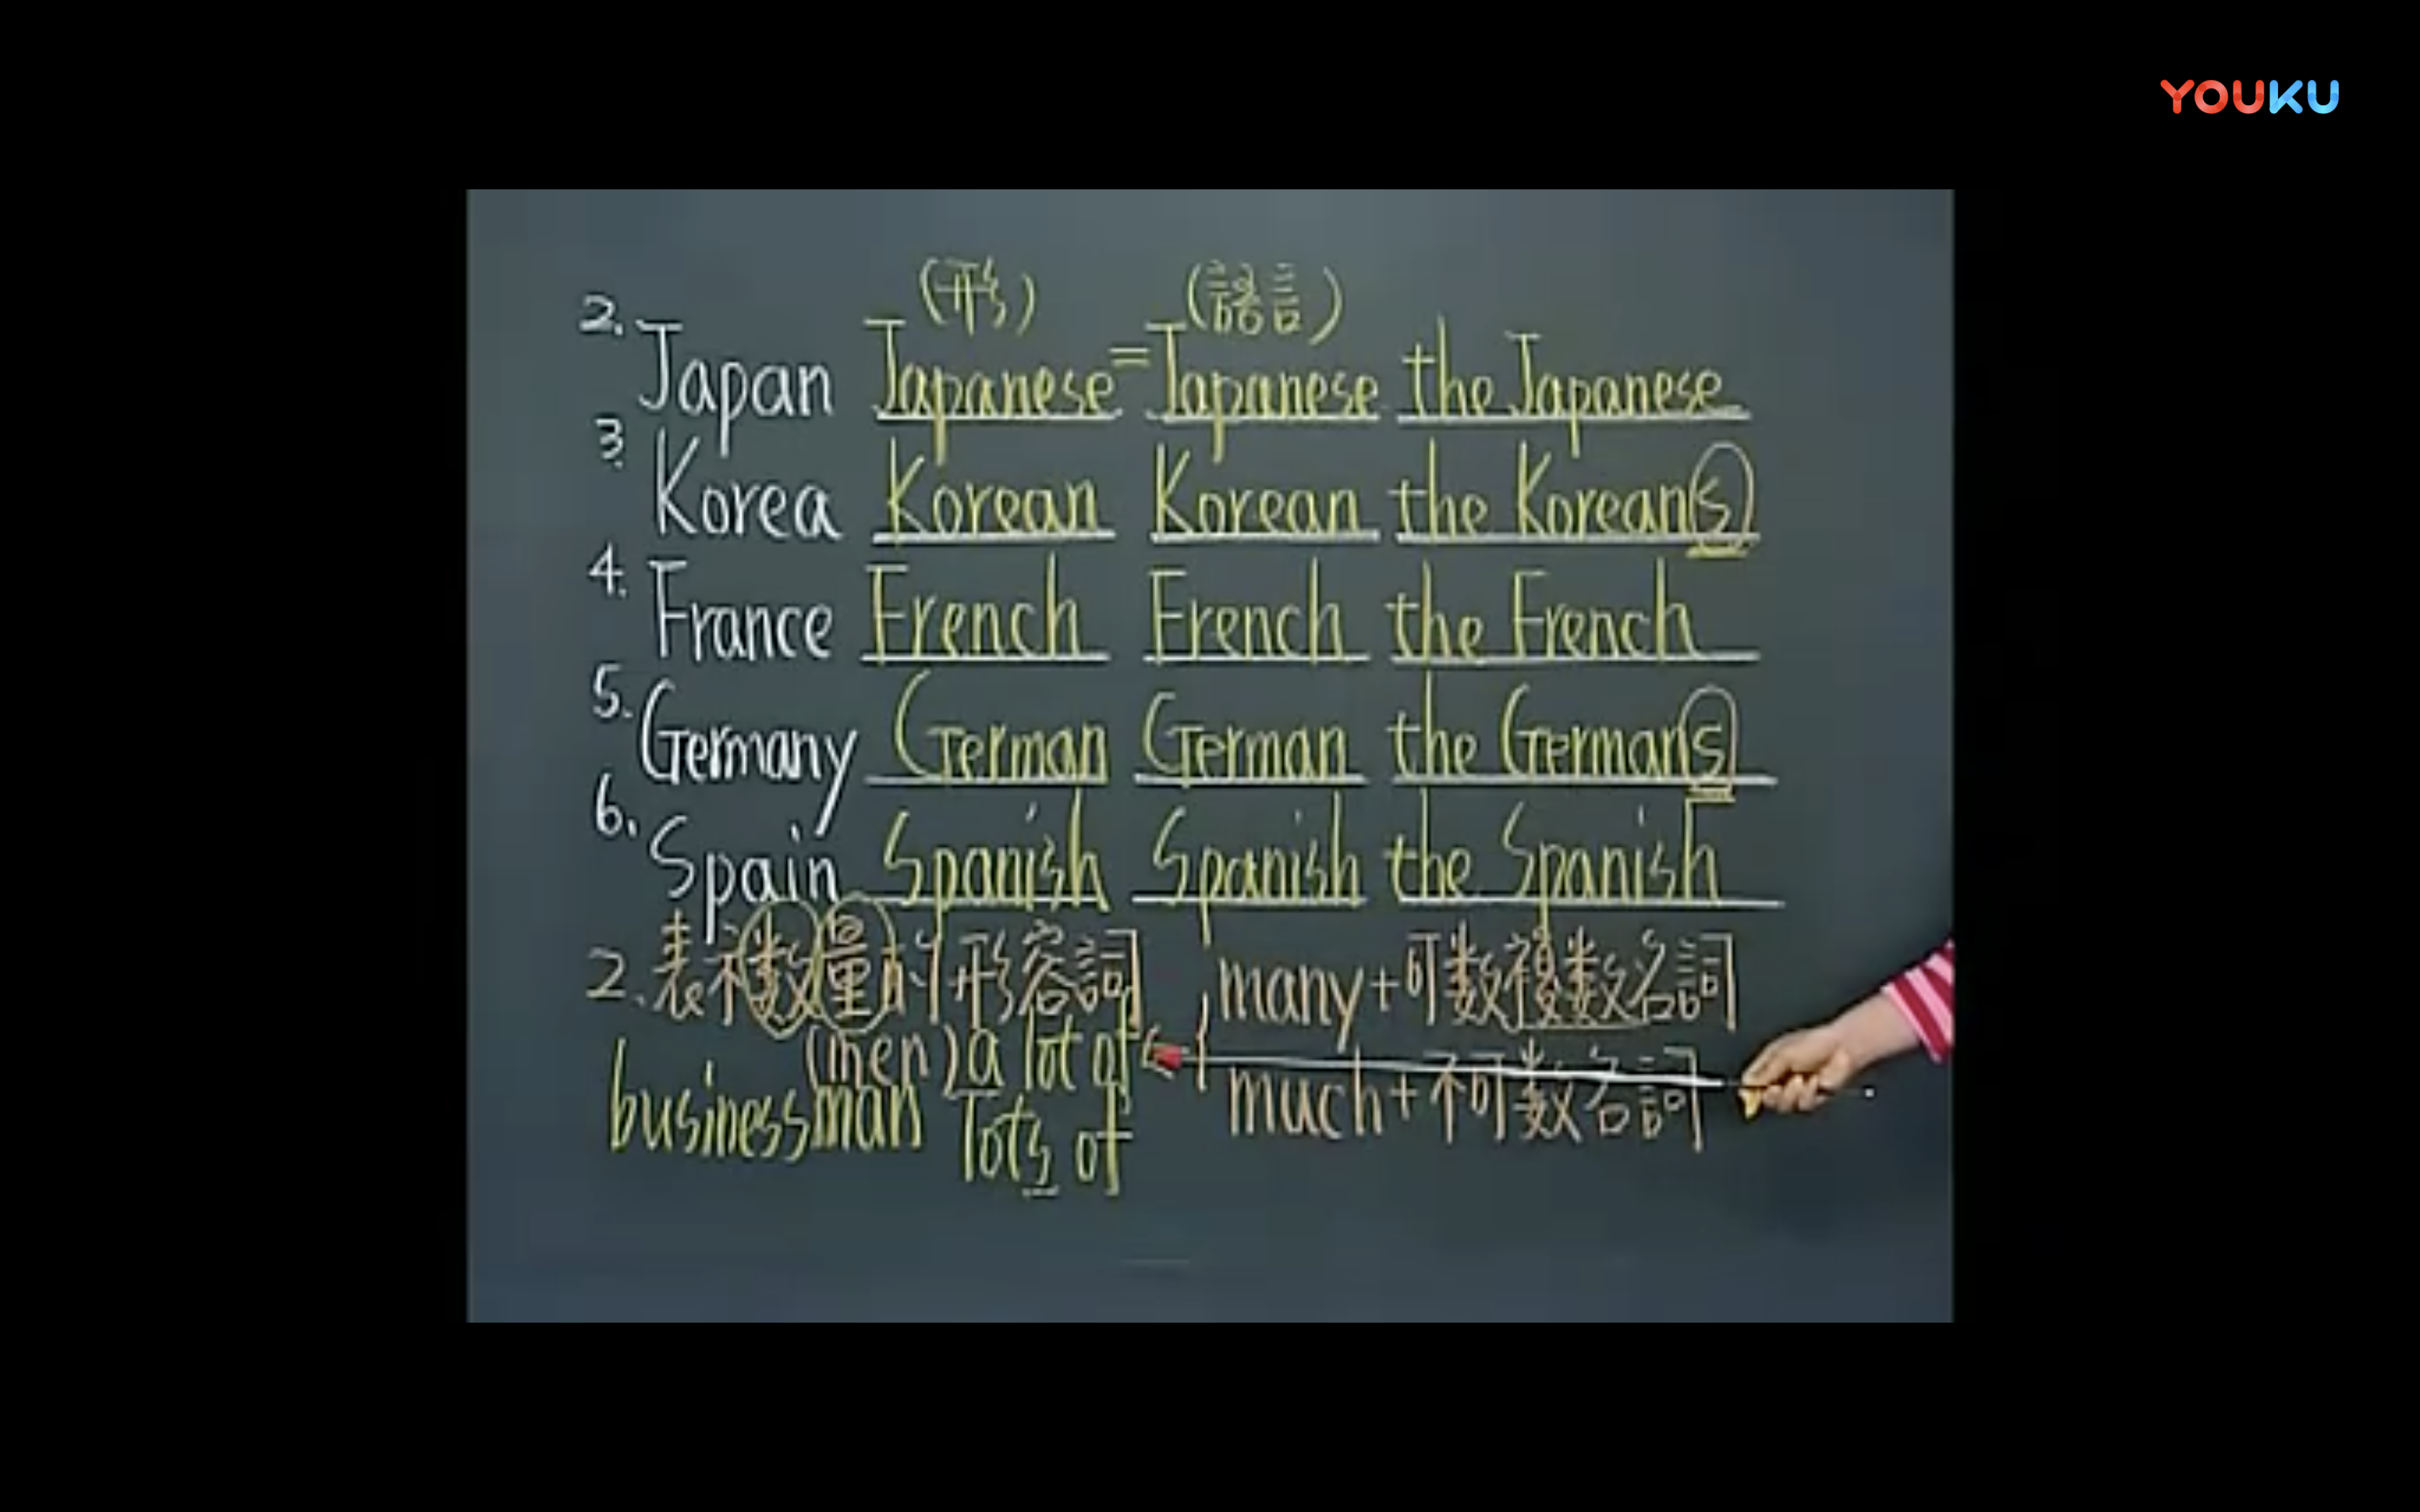 YOUKU
(形) (語言)
2. Japan Japanese = Japanese the Japanese
3. Korea Korean Korean the Koreans
4. France French French the French
5. Germany German German the Germans
6. Spain Spanish Spanish the Spanish
2. 表示数量的形容詞 { many+可数複数名詞
(men) a lot of
businessman lots of
much+不可数名詞